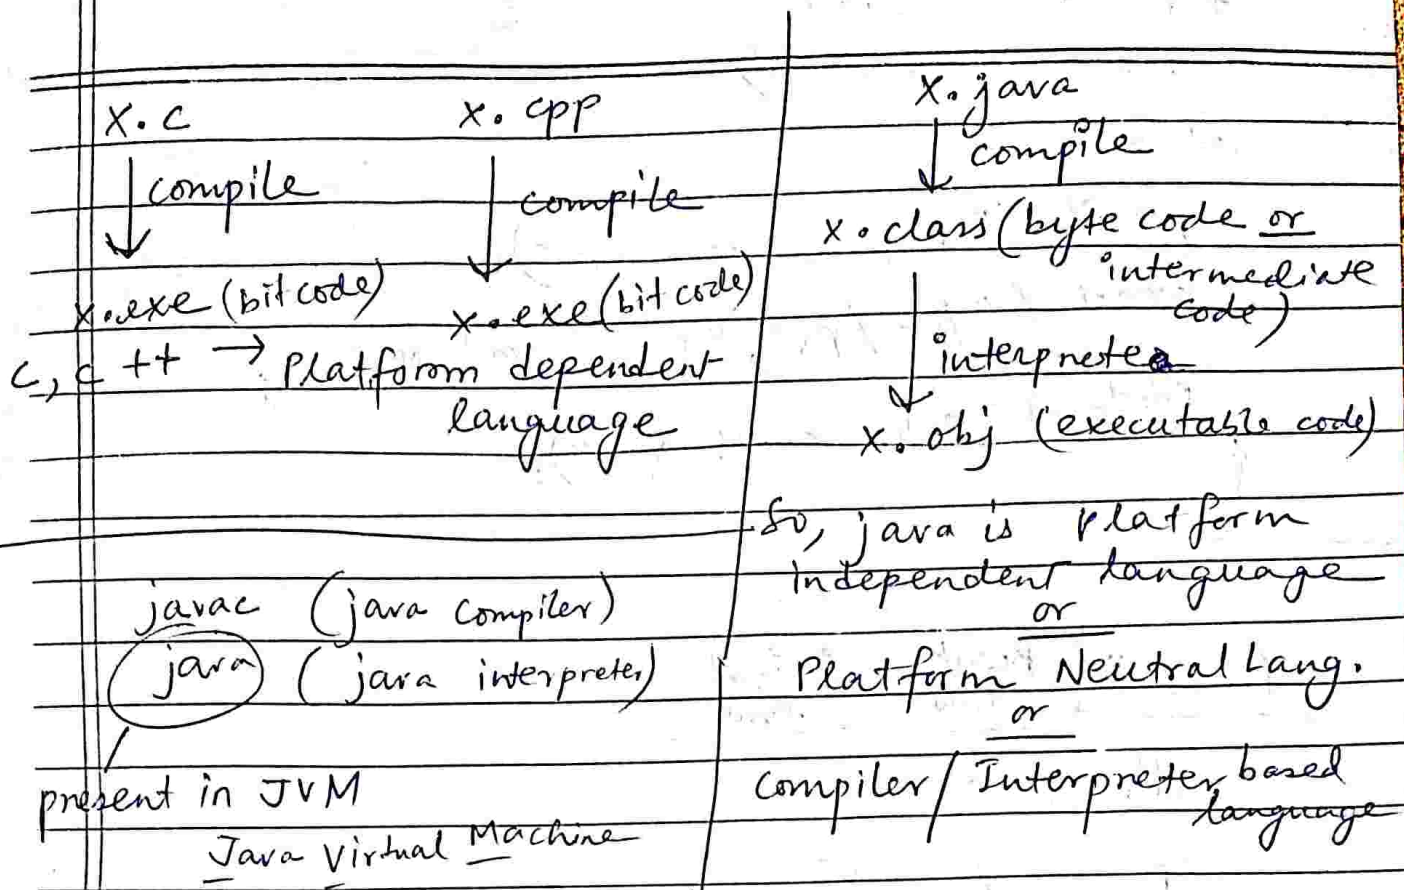 x.c
compile
x.exe (bit code)
x.cpp
compile
x.exe (bit code)
c, c++ → Platform dependent
language
javac (java compiler)
java (java interpreter)
present in JVM
Java Virtual Machine
x.java
compile
x.class (byte code or
intermediate
code)
interpreter
x.obj (executable code)
So, java is Platform
independent language
or
Platform Neutral Lang.
or
Compiler/Interpreter based
language